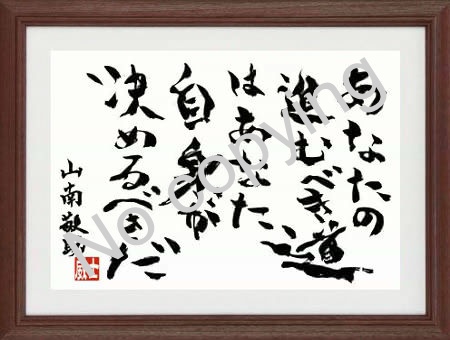 あなたの
進むべき道
はあなた
自身が
決めるべきだ
山南敬助
No copying